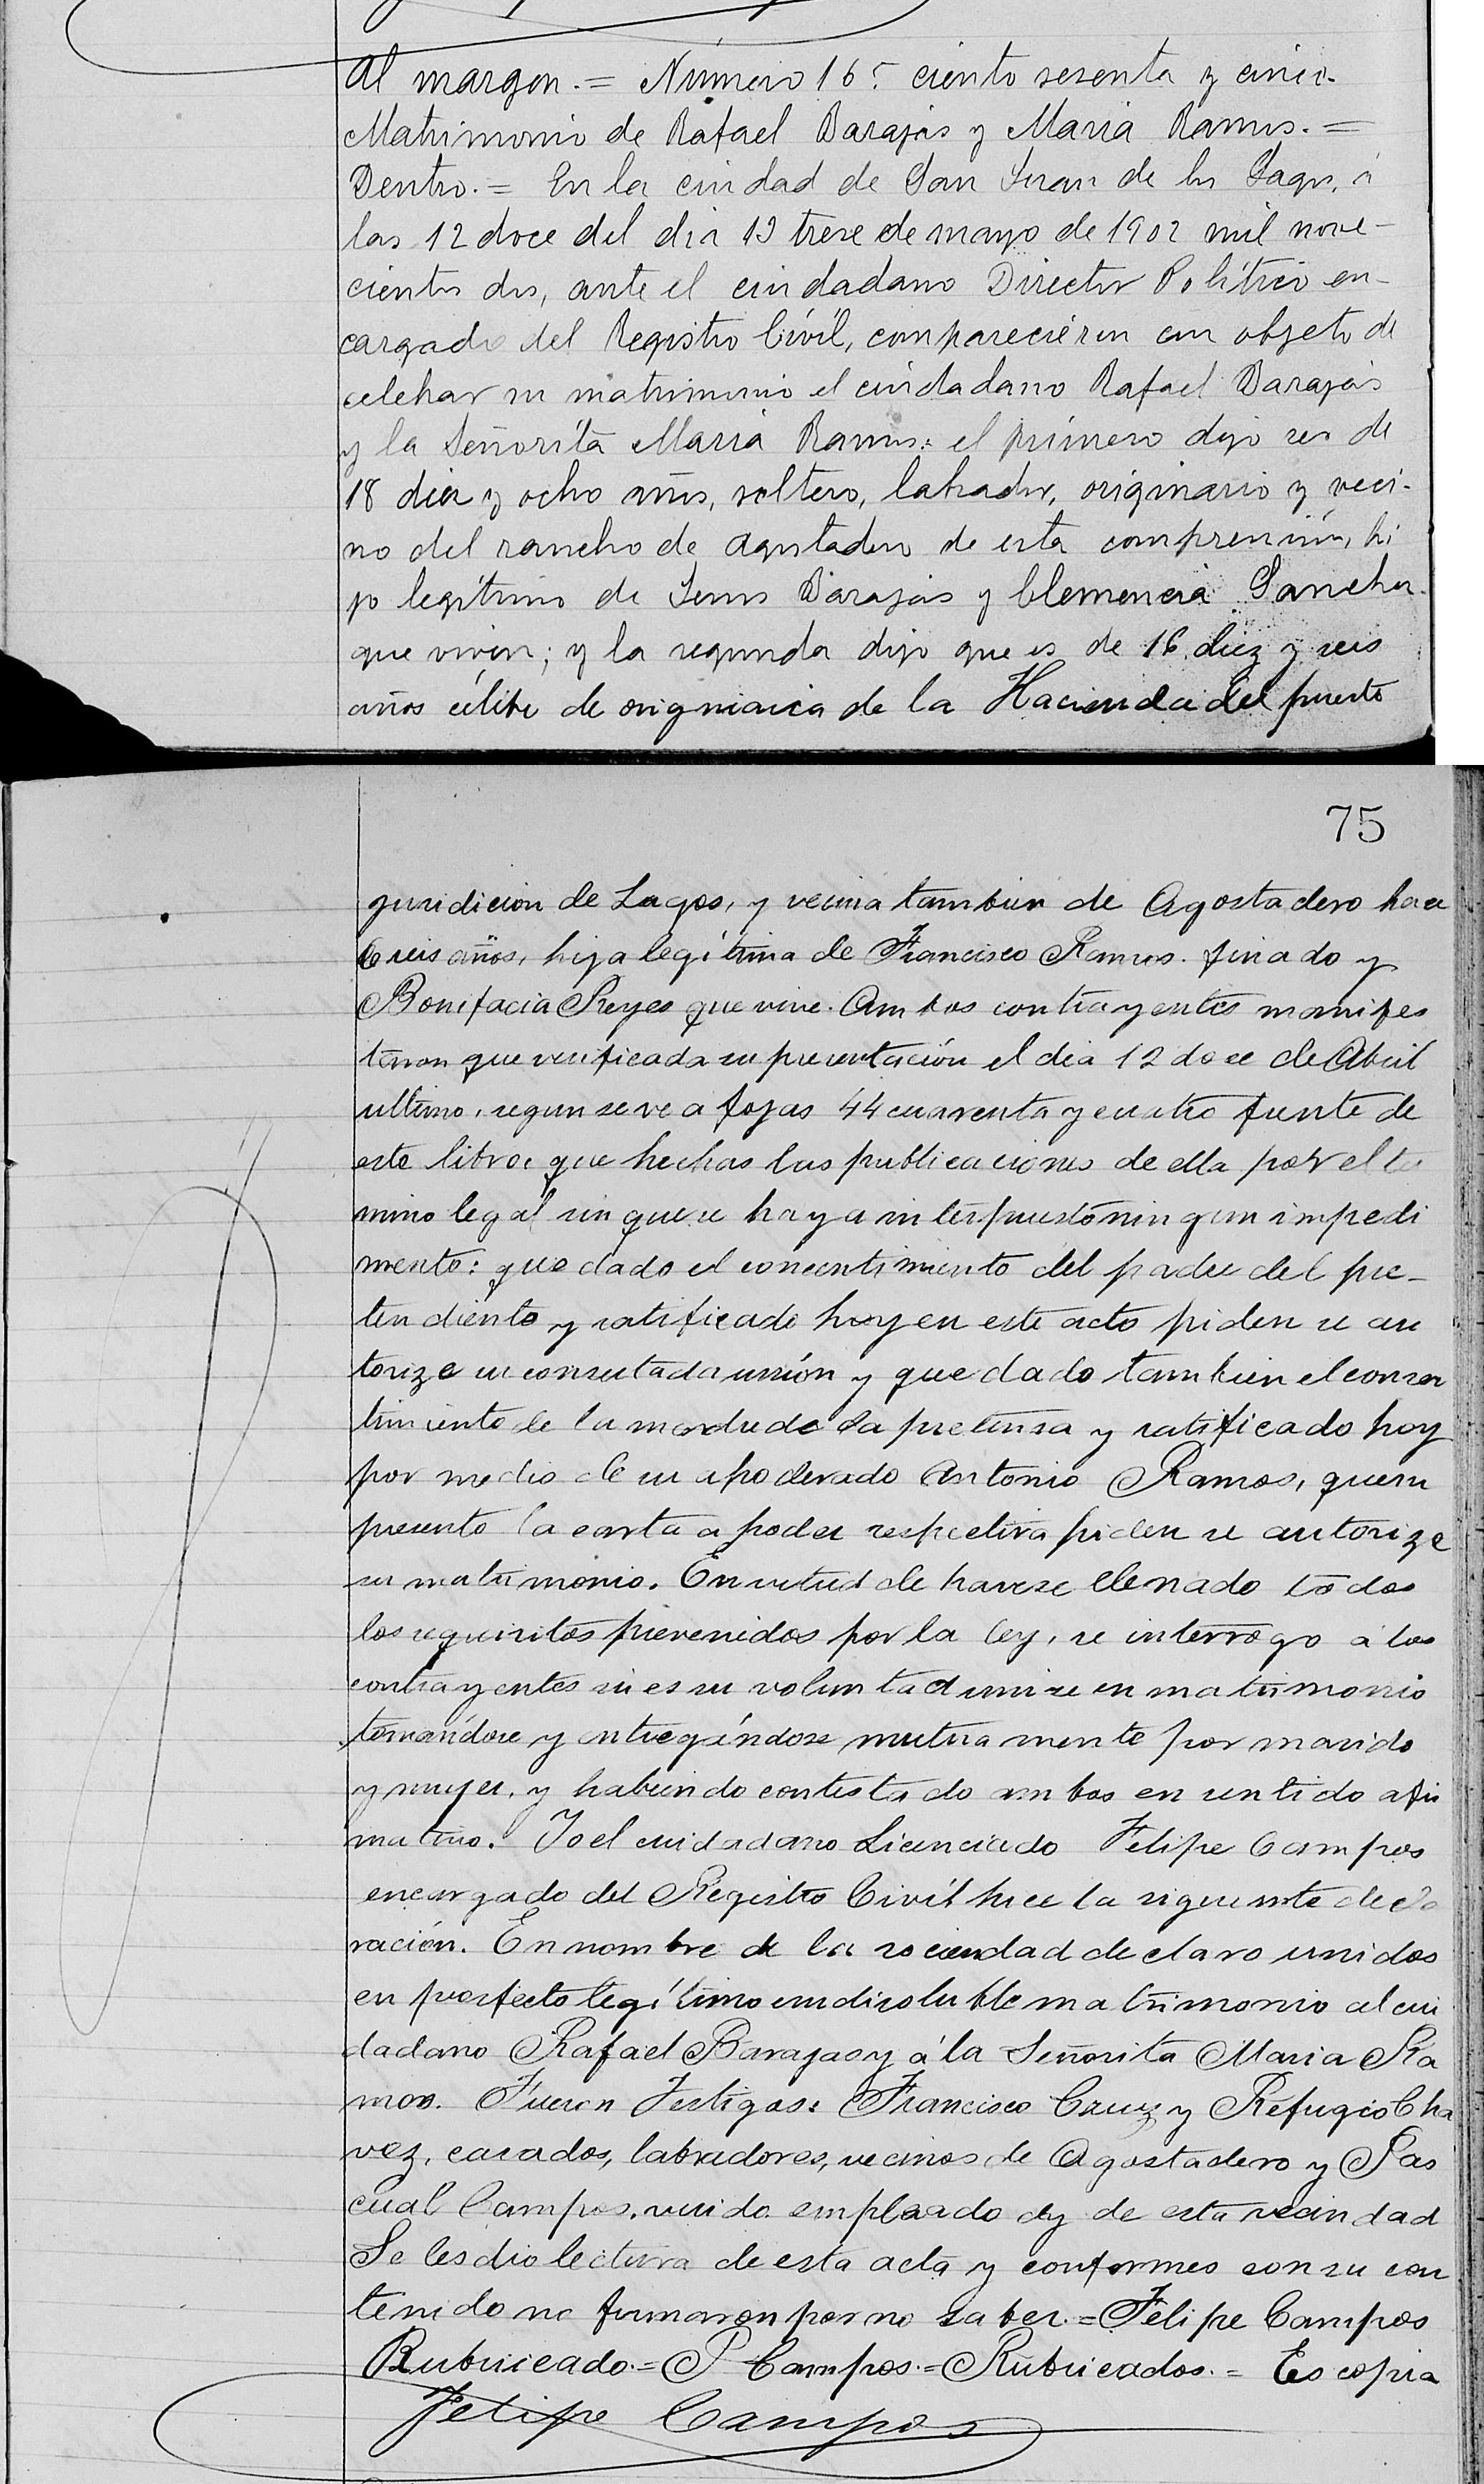 Al margen.= Número 165 ciento sesenta y cinco.
Matrimonio de Rafael Barajas y Maria Ramos.=
Dentro.= En la ciudad de San Juan de los Lagos, á
las 12 doce del dia 13 trese de mayo de 1902 mil nove-
cientos dos, ante el ciudadano Director Político en-
cargado del Registro Civíl, comparecieron con objeto de
celebrar su matrimonio el ciudadano Rafael Barajas
y la Señorita Maria Ramos: el primero dijo ser de
18 diez y ocho años, soltero, labrador, originario y veci-
no del rancho de Agostadero de esta comprension, hi
jo legítimo de Jesus Barajas y Clemencia Sanchez.
que viven; y la segunda dijo que es de 16 diez y seis
años célibe de originaria de la Hacienda del puesto
75
juridicion de Lagos, y vecina tambien de Agostadero hace
6 seis años, hija legítima de Francisco Ramos. finado y
Bonifacia Reyes que vive. Ambos contrayentes manifes
taron que verificada su presentación el dia 12 doce de Abril
ultimo, segun se ve a fojas 44 cuarenta y cuatro frente de
este libro: que hechas las publicaciones de ella por el ter
mino legal sin que se haya interpuesto ningun impedi
mento: que dado el concentimiento del padre del pre-
tendiente y ratificado hoy en este acto piden se au
torize su consultada unión y que dado tambien el consen
timiento de la madre de la pretensa y ratificado hoy
por medio de su apoderado Antonio Ramos, quien
presento la carta a poder respectiva piden se autorize
su matrimonio. En virtud de haverse llenado todos
los requisitos prevenidos por la ley, se interrogo á los
contrayentes si es su voluntad unirse en matrimonio
tomandose y entregándose mutuamente por marido
y mujer, y habiendo contestado ambos en sentido afir
mativo. Yo el ciudadano Licenciado Felipe Campos
encargado del Registro Civíl hice la siguiente decla
ración. En nombre de la sociedad declaro unidos
en perfecto legítimo e indisoluble matrimonio al ciu
dadano Rafael Barajas y á la Señorita Maria Ra
mos. Fueron Testigos: Francisco Cruz y Refugio Cha
vez, casados, labradores, vecinos de Agostadero y Pas
cual Campos, viudo empleado y de esta vecindad
Se les dio lectura de esta acta y conformes con su con
tenido no firmaron por no saber.= Felipe Campos
Rubricado.= P Campos.= Rubricados.= Es copia
Felipe Campos